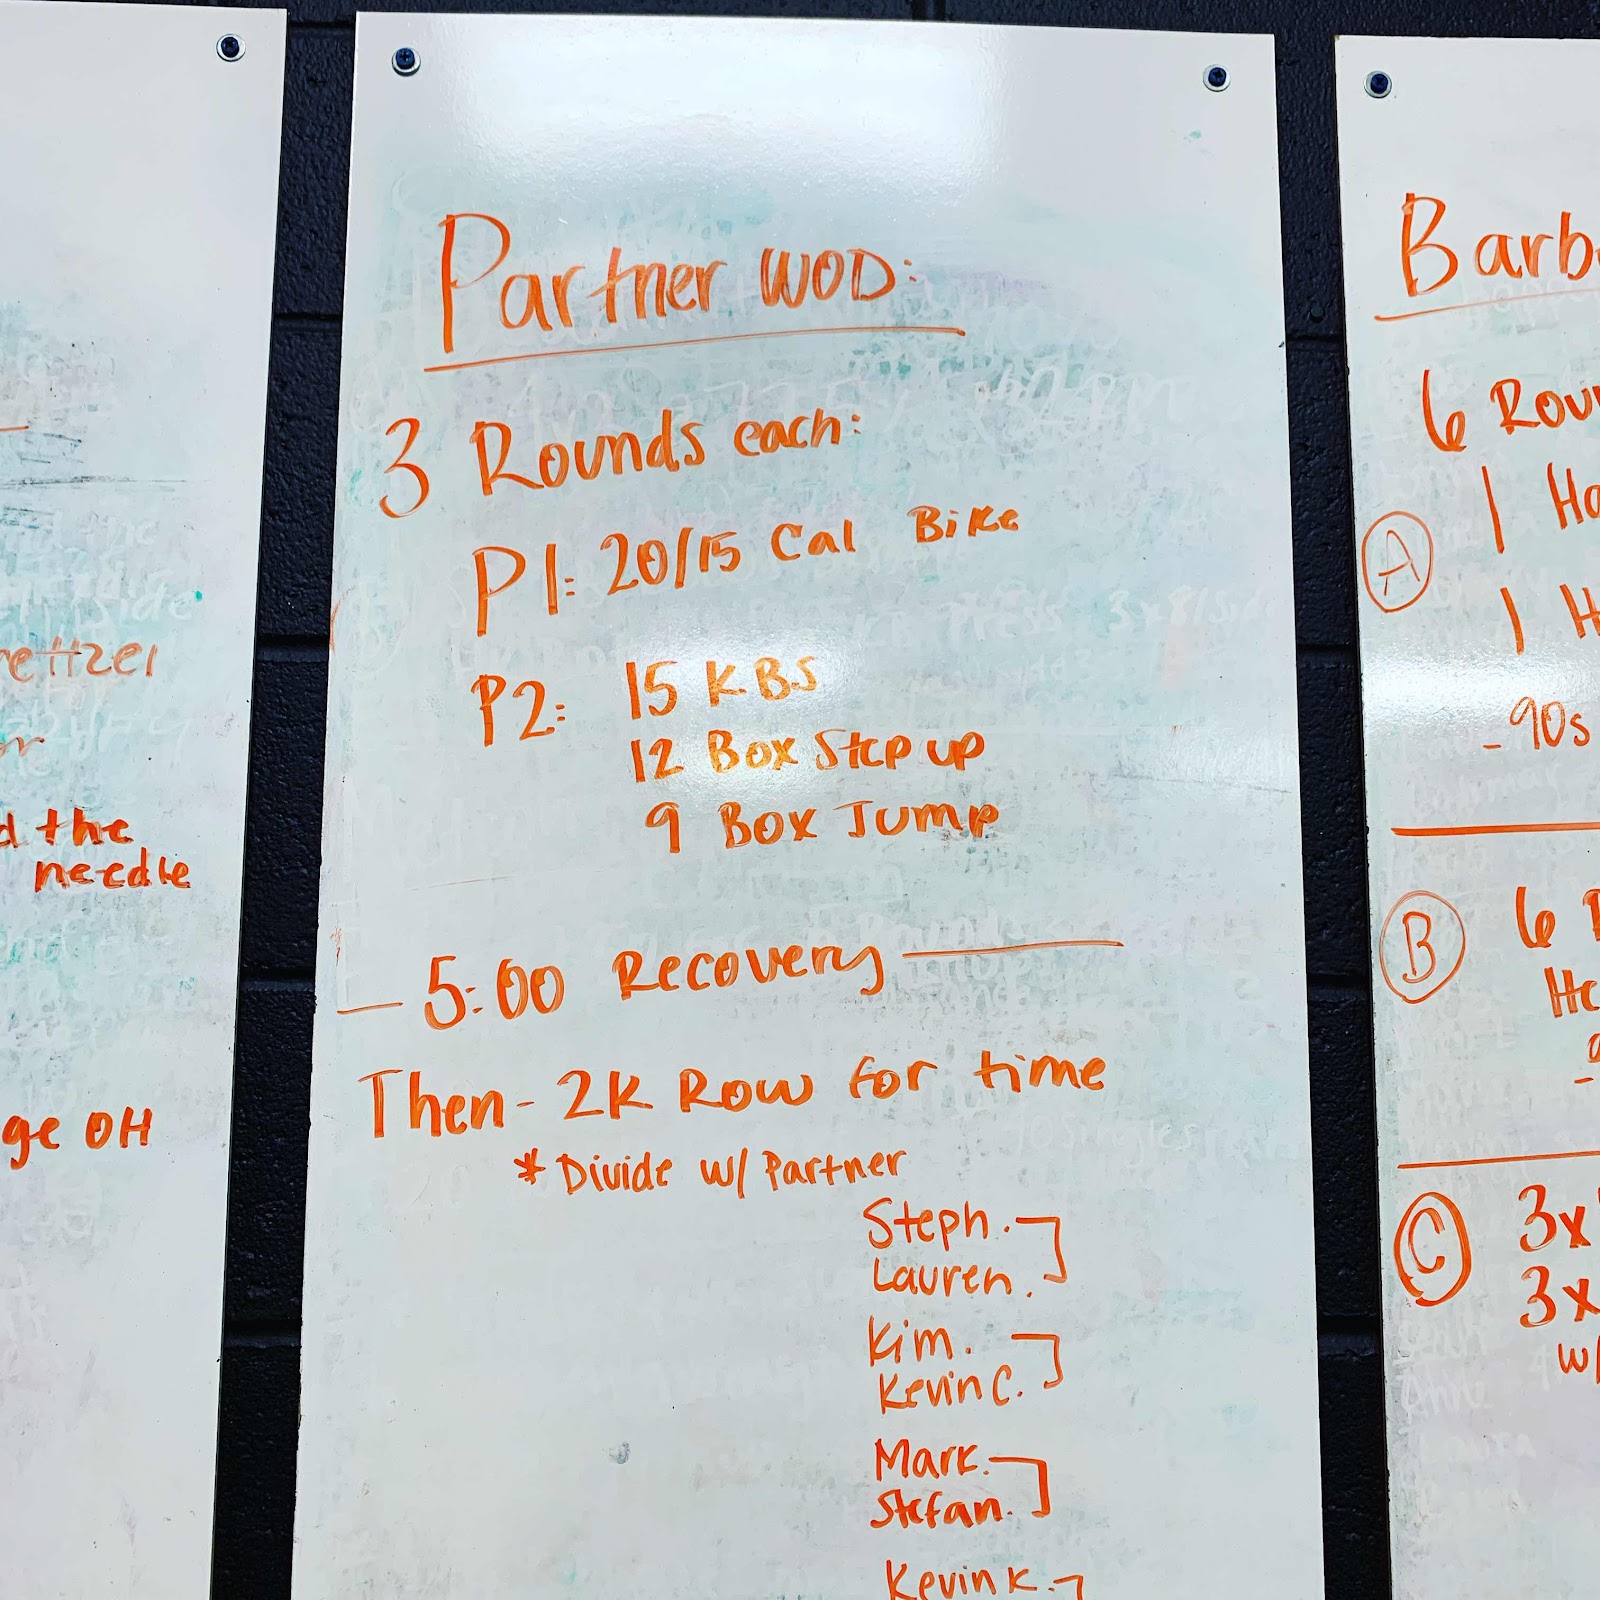 rettzel
d the
needle
ge OH
Partner WOD:
3 Rounds each:
P1: 20/15 Cal Bike
P2: 15 KBS
12 Box Step up
9 Box Jump
— 5:00 Recovery —
Then - 2K Row for time
* Divide w/ Partner
Steph.
Lauren.
Kim.
Kevin C.
Mark.
Stefan.
Kevin K.
Barb
6 Rou
A
1 Ha
1 H
- 90s
B
6 R
He
C
3x
3x
w/